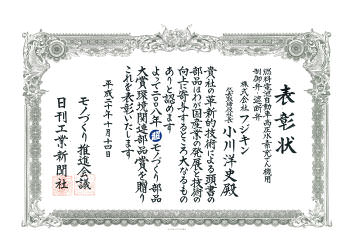 表彰状
燃料電池自動車高圧水素ガス機用
制御弁、遮断弁
株式会社フジキン
代表取締役社長
小川洋史殿
貴社の革新的技術による頭書の
部品はわが国産業の発展と技術の
向上に寄与するところ大なるもの
ありと認めます
よって二〇〇八年超モノづくり部品
大賞環境関連部品賞を贈り
これを表彰いたします
平成二十年十月十四日
モノづくり推進会議
日刊工業新聞社